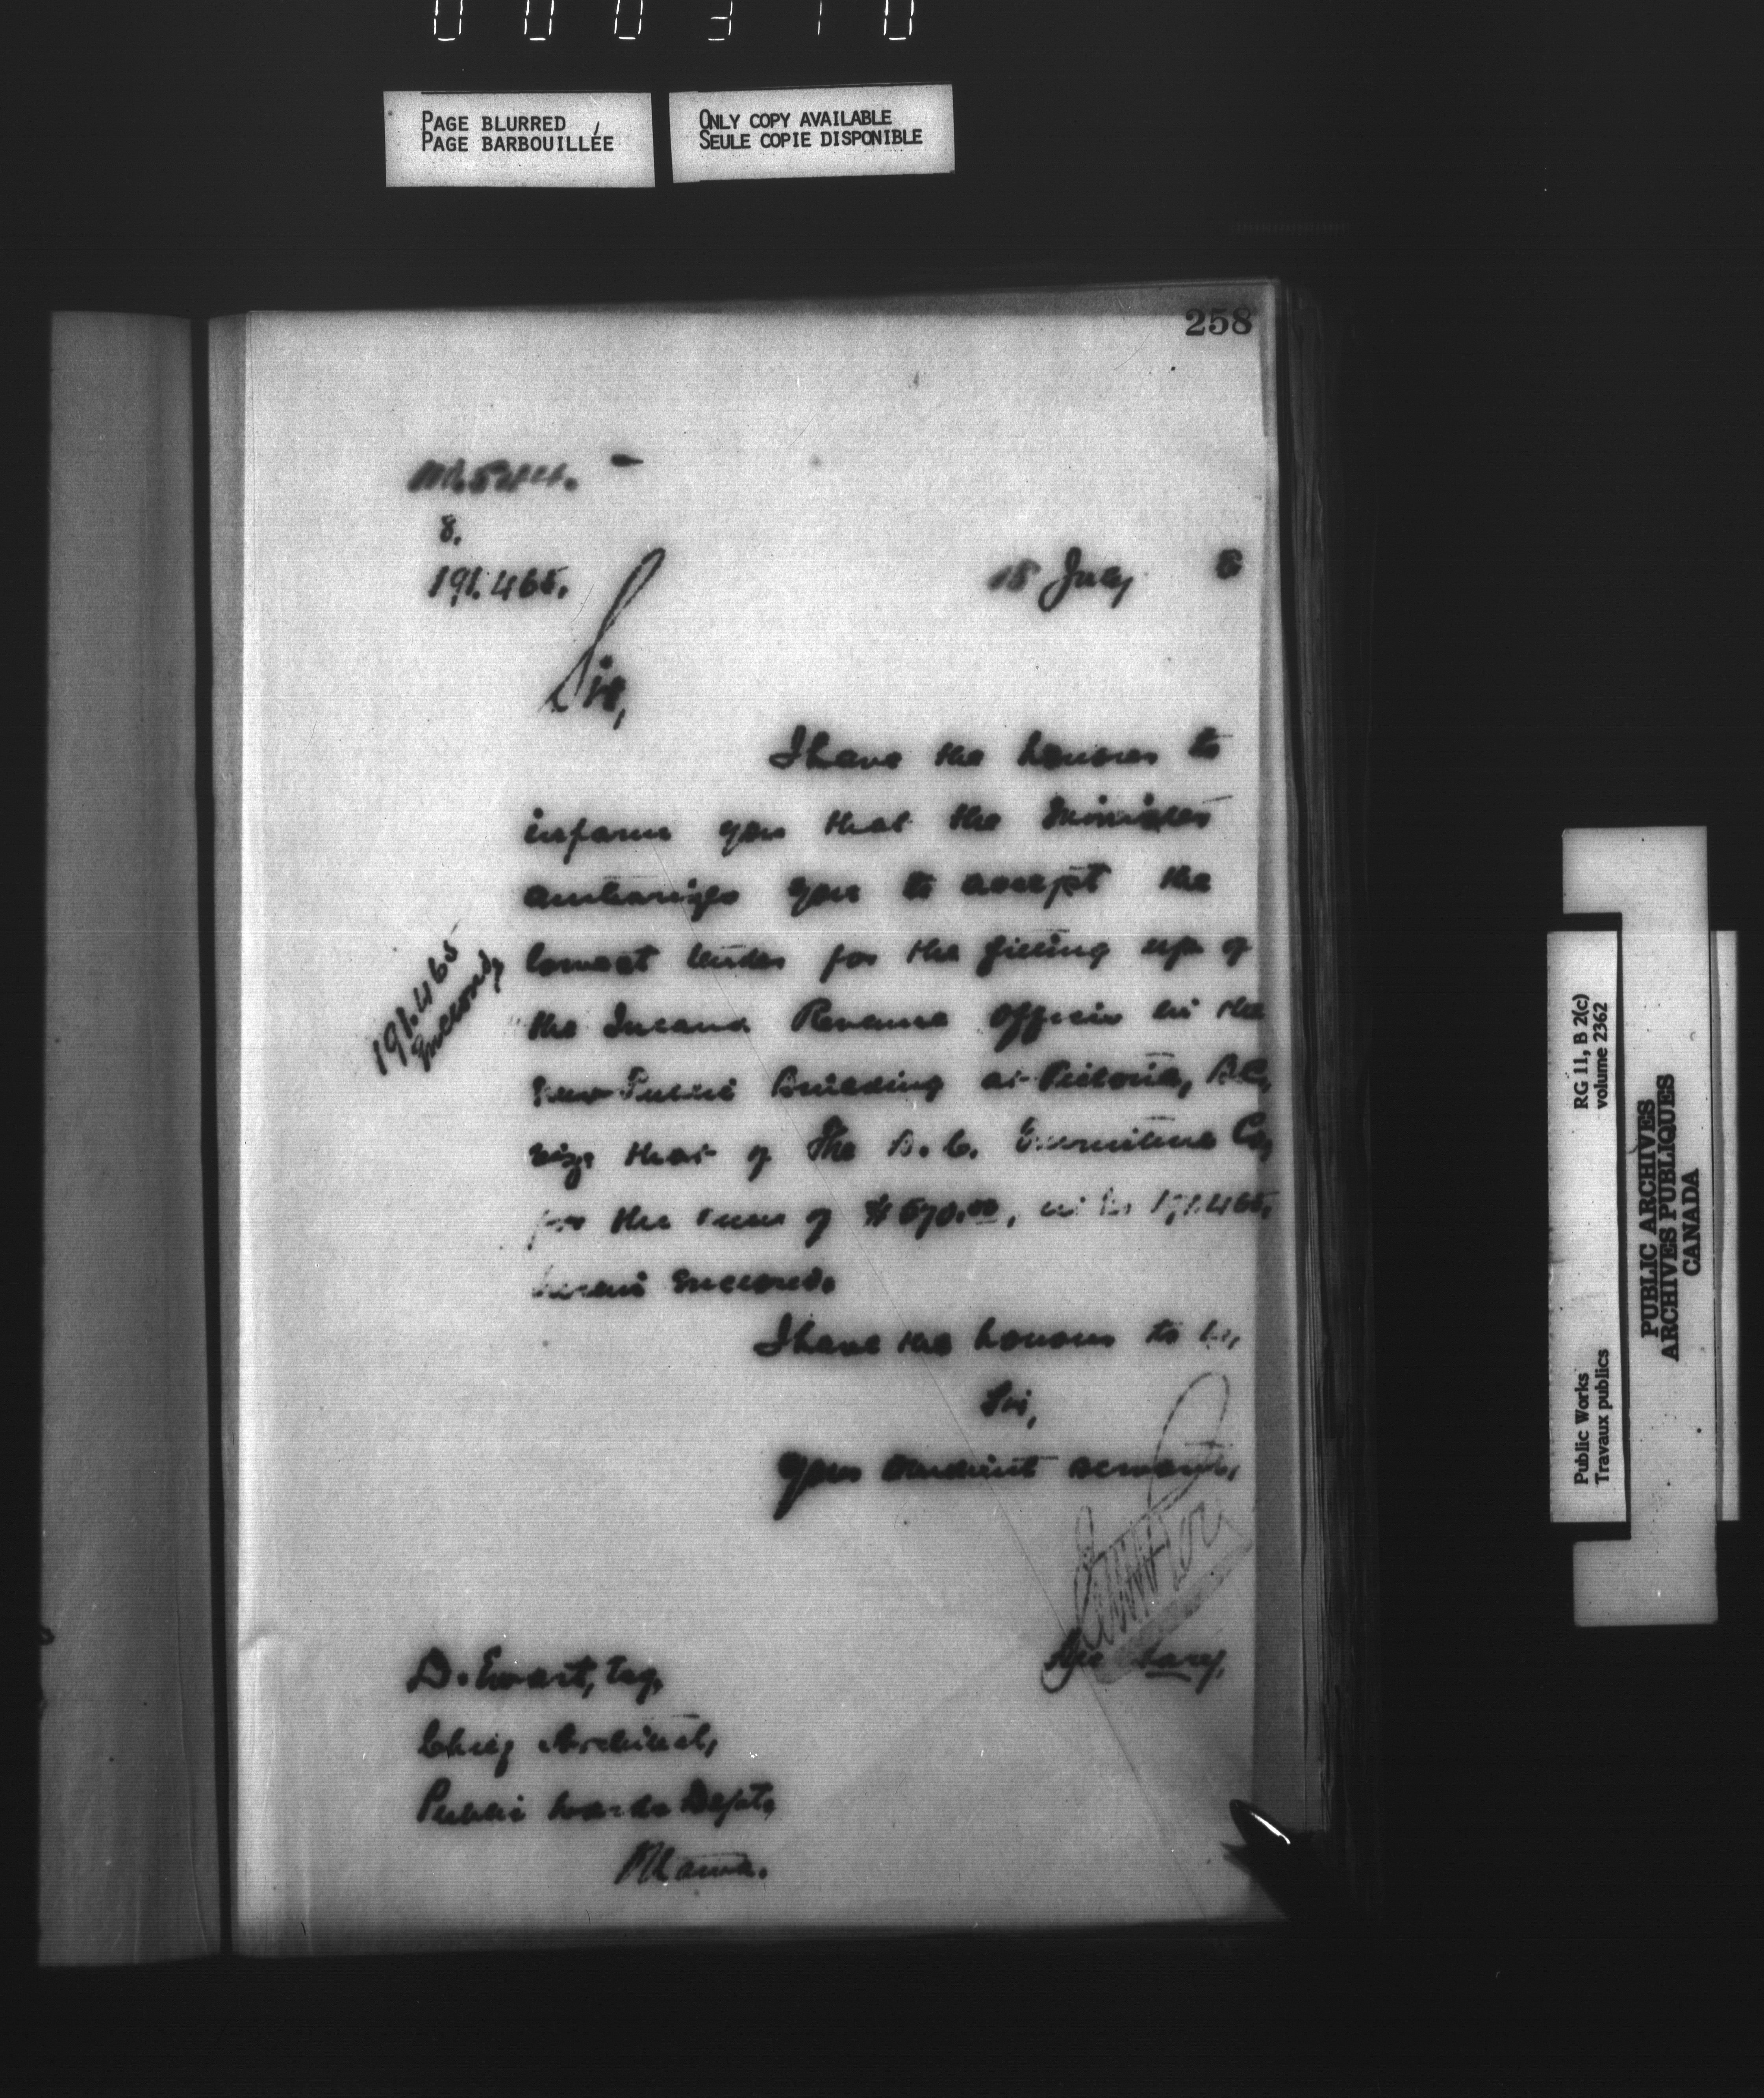 000310
PAGE BLURRED
PAGE BARBOUILLÉE
ONLY COPY AVAILABLE
SEULE COPIE DISPONIBLE
258
8.
191.465.
15 July 8
Sir,
I have the honour to
inform you that the Minister
authorizes you to accept the
lowest tender for the fitting up of
the Inland Revenue Offices in the
new Public Building at Victoria, B.C,
viz: that of The B. C. Furniture Co,
for the sum of $570.00, 191.465,
herein enclosed.
191.465
enclosed,
I have the honour to be,
Sir,
Your obedient servant,
Secretary.
D. Ewart, Esq,
Chief Architect,
Public Works Dept,
Ottawa.
RG 11, B 2(c)
volume 2362
Public Works
Travaux publics
PUBLIC ARCHIVES
ARCHIVES PUBLIQUES
CANADA